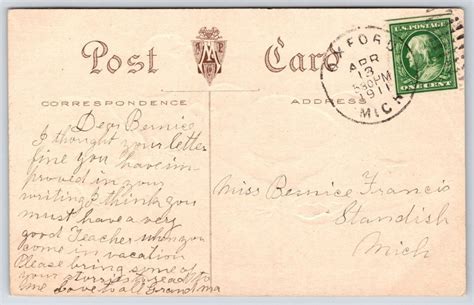 Post Card
A P
M
CO
OXFORD
APR
13
530PM
1911
MICH
U.S. POSTAGE
ONE CENT
CORRESPONDENCE
ADDRESS
Dear Bernice
I thought your letter
fine you have im-
proved in your
writing I think you
must have a very
good Teacher when you
come in vacation
Please bring some of
your storries to read to
me Love to all Grandma
Miss Bernice Francis
Standish
Mich